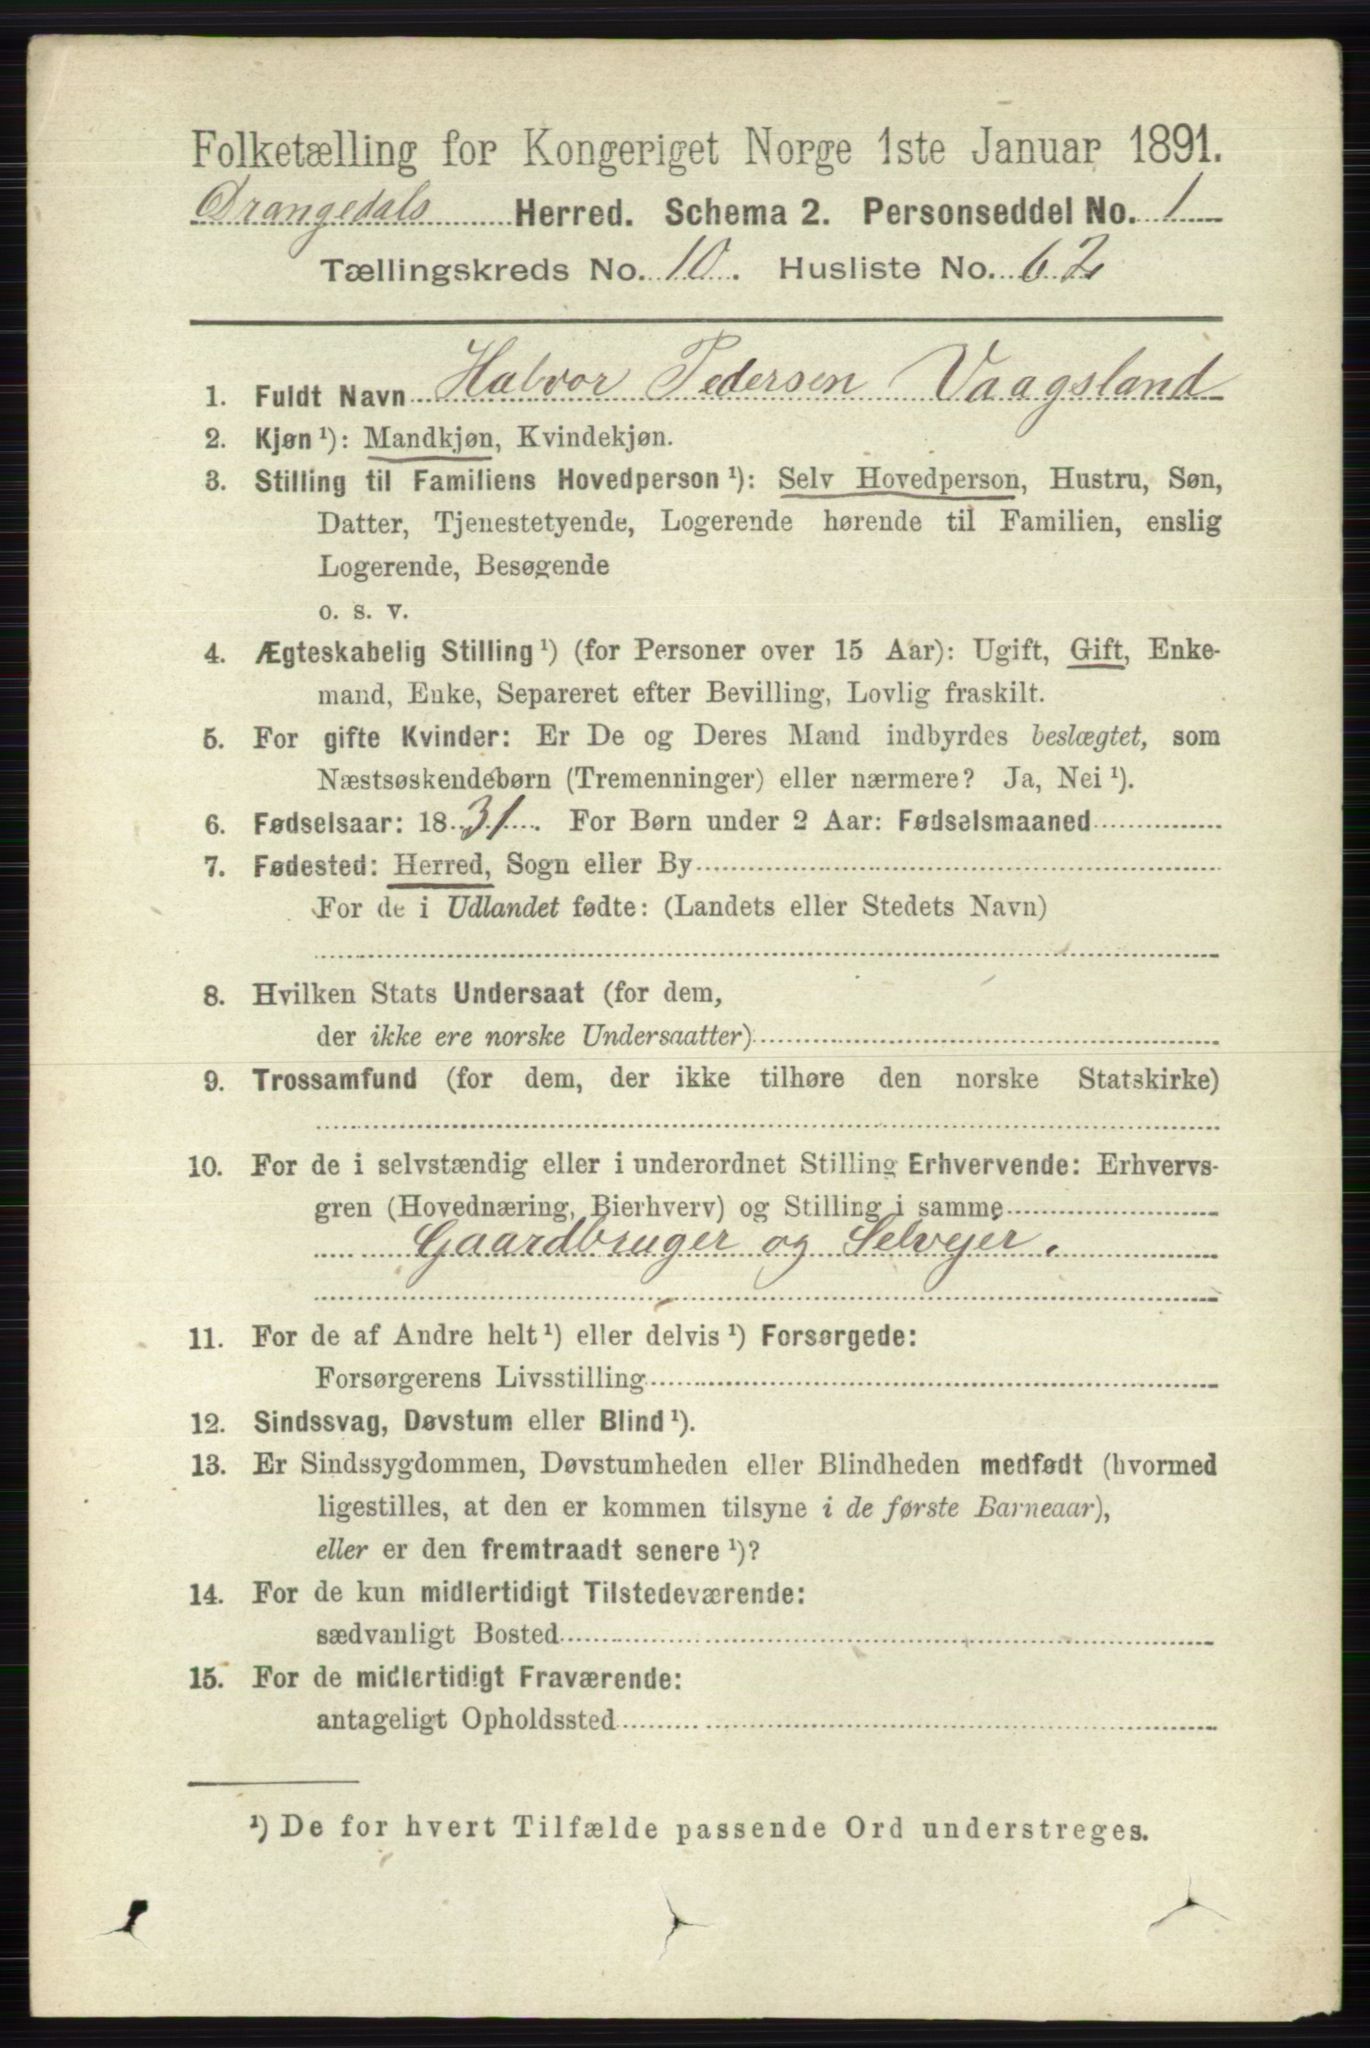 Folketælling for Kongeriget Norge 1ste Januar 1891.
Drangedals Herred. Schema 2. Personseddel No. 1
Tællingskreds No. 10. Husliste No. 62
1. Fuldt Navn Halvor Pedersen Vaagsland
2. Kjøn ¹): Mandkjøn, Kvindekjøn.
3. Stilling til Familiens Hovedperson ¹): Selv Hovedperson, Hustru, Søn,
Datter, Tjenestetyende, Logerende hørende til Familien, enslig
Logerende, Besøgende
o. s. v.
4. Ægteskabelig Stilling ¹) (for Personer over 15 Aar): Ugift, Gift, Enke-
mand, Enke, Separeret efter Bevilling, Lovlig fraskilt.
5. For gifte Kvinder: Er De og Deres Mand indbyrdes beslægtet, som
Næstsøskendebørn (Tremenninger) eller nærmere? Ja, Nei ¹).
6. Fødselsaar: 1831. For Børn under 2 Aar: Fødselsmaaned
7. Fødested: Herred, Sogn eller By
For de i Udlandet fødte: (Landets eller Stedets Navn)
8. Hvilken Stats Undersaat (for dem,
der ikke ere norske Undersaatter)
9. Trossamfund (for dem, der ikke tilhøre den norske Statskirke)
10. For de i selvstændig eller i underordnet Stilling Erhvervende: Erhvervs-
gren (Hovednæring, Bierhverv) og Stilling i samme
Gaardbruger og Selvejer.
11. For de af Andre helt ¹) eller delvis ¹) Forsørgede:
Forsørgerens Livsstilling
12. Sindssvag, Døvstum eller Blind ¹).
13. Er Sindssygdommen, Døvstumheden eller Blindheden medfødt (hvormed
ligestilles, at den er kommen tilsyne i de første Barneaar),
eller er den fremtraadt senere ¹)?
14. For de kun midlertidigt Tilstedeværende:
sædvanligt Bosted
15. For de midlertidigt Fraværende:
antageligt Opholdssted
¹) De for hvert Tilfælde passende Ord understreges.